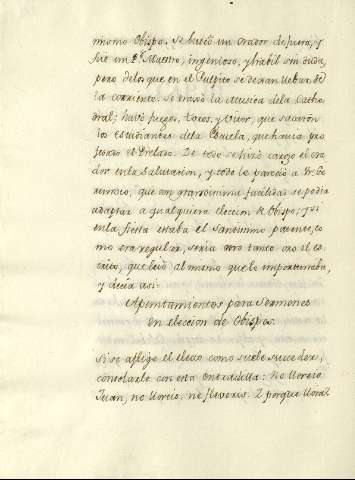 mismo Obispo. Se buscó un orador de fuera, y
fue un P.e Maestro, ingenioso, y habil sin duda,
pero de los que en el Pulpito se dexan llebar de
la corriente. Se trató la Musica dela Cathe
dral; hubo fuegos, toros, y Victor, que sacaron
los estudiantes dela Escuela, que havia pro
fesado el Prelado. De todo se hizo cargo el ora
dor en la Salutacion, y todo le pareció a Fr. Ge
rundio, que con grandissima facilidad se podia
adaptar a qualquiera eleccion de Obispo; y si
en la fiesta estaba el Santisimo patente, co
mo era regular, seria otro tanto oro il es
crito, que leió al mismo que le importunaba,
y decia asi:
Apuntamientos para Sermones
en eleccion de Obispos.
Si se aflige el electo como suele suceder,
consolarle con esta entradilla: No lloreis
Juan, no lloreis: ne fleveris. I porque llora?